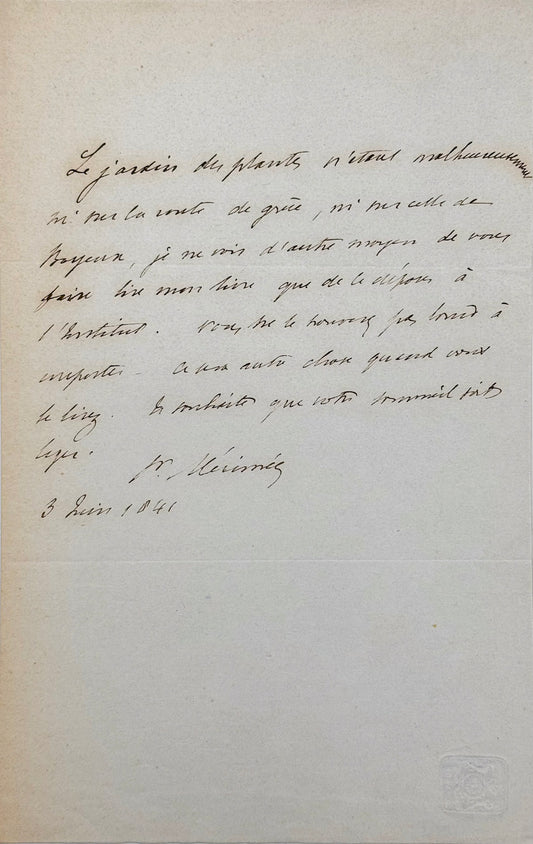 Le jardin des plantes n'étant malheureusement
ni sur la route de grèce, ni sur celle de
Bayeux, je ne vois d'autre moyen de vous
faire lire mon livre que de le déposer à
l'Institut. Vous ne le trouverez pas lourd à
emporter – ce sera autre chose quand vous
le lirez. Je souhaite que votre sommeil soit
léger.
Pr. Mérimée
3 Juin 1841